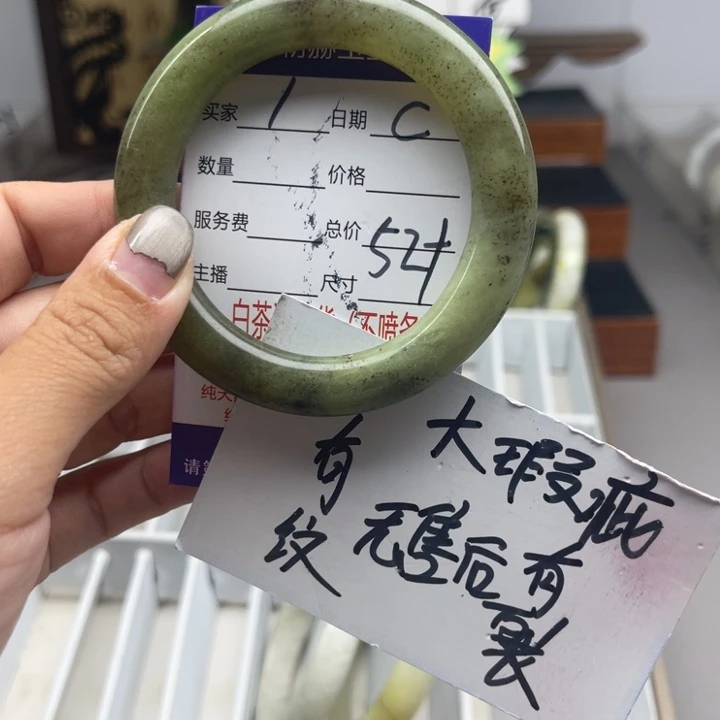 买家 1 日期 C
数量 价格
服务费 总价
主播 尺寸 52#
白茶
纯天
请
大瑕疵
有 无售后有
纹 裂